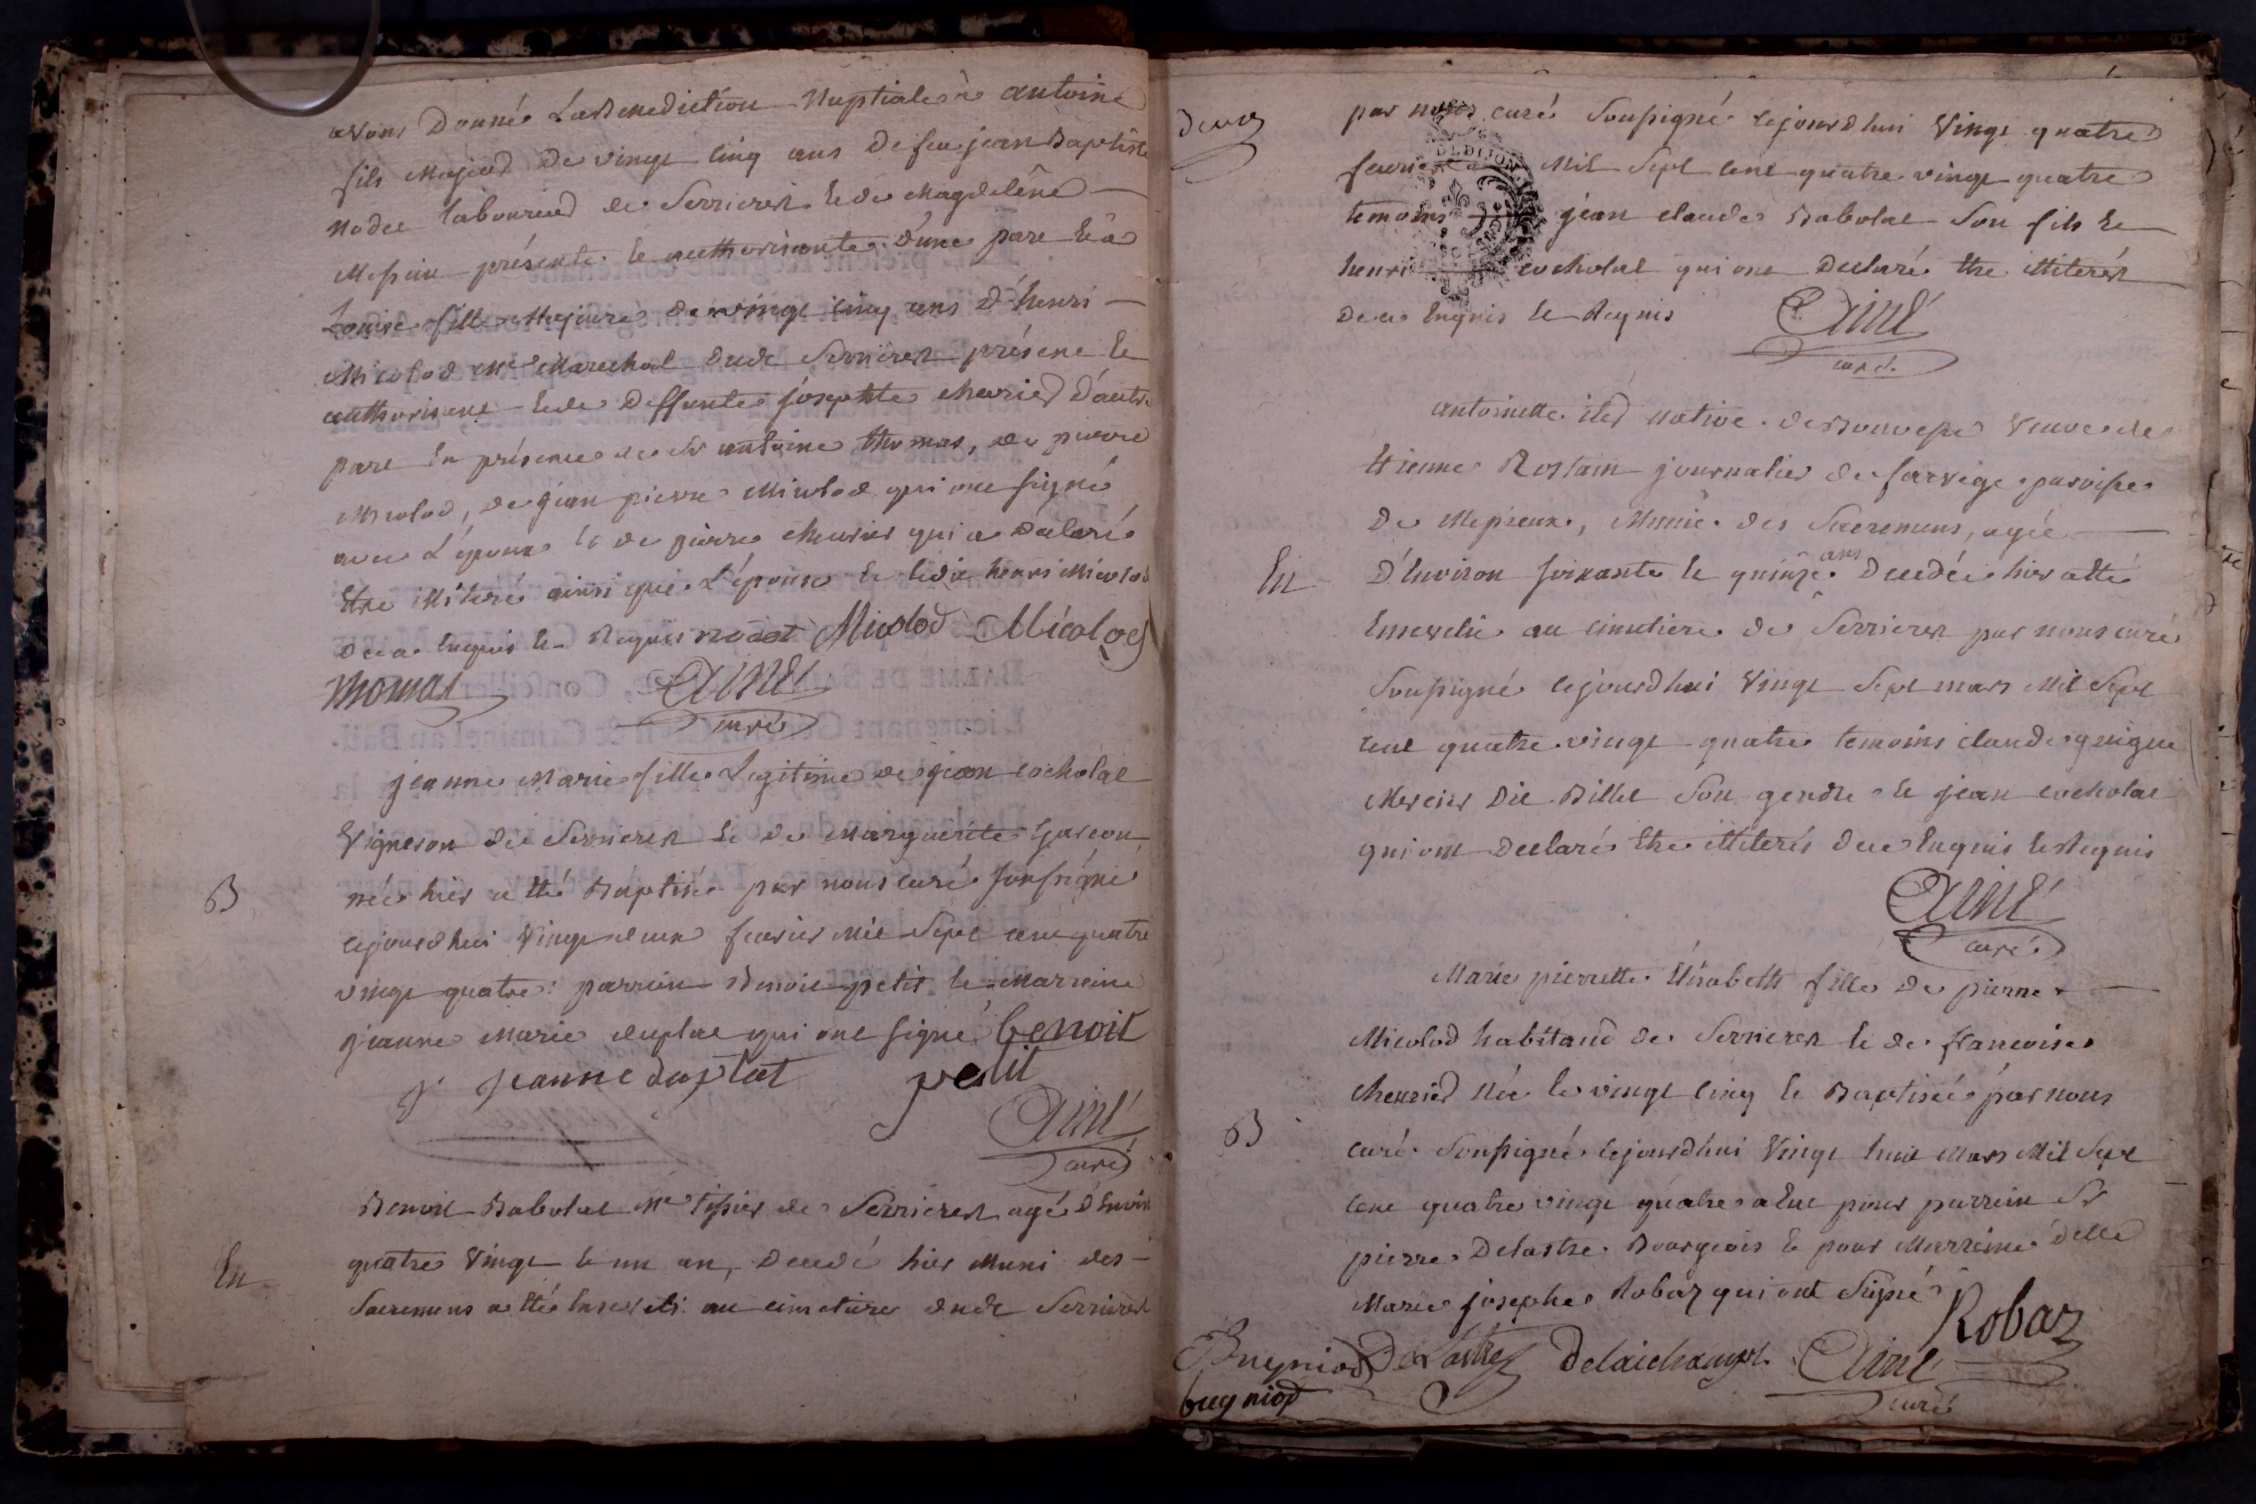 avons Donné La Benediction Nuptiale à antoine
fils Majeur De vingt cinq ans De feu jean Baptiste
Nodet laboureur de Serrieres et de Magdelêne
Messiau présente et authorisante d'une part et à
Louise fille Majeure de vingt cinq ans d'henri
Micolod Me Marechal dudt Serrieres présent et
authorisant et de Deffunte josephte chevrier D'autre
part En présence de Sr antoine thomas, de pierre
Micolod, de jean pierre Micolod qui ont signé
avec L'époux et de pierre cheurier qui a Declaré
Etre illiteré ainsi que L'épouse et ledit henri Micolod
De ce Enquis et Requis nodet Micolod Micolod
thomas Aimé
curé
B
jeanne Marie fille Legitime de jean cocholat
Vigneron de Serrieres et de Marguerite garçon
née hier a été Baptisée par nous curé soussigné
cejourdhui Vingt deux fevrier Mil Sept cent quatre
vingt quatre: parrein Benoit petit et Marreine
jeanne Marie duplat qui ont signé benoit
j jeanne duplat petit
Aimé
curé
En
Benoit Babolat Me tissier de Serrieres agé D'Environ
quatre Vingt et un an, Decedé hier Muni des
Sacremens a été Enseveli au cimetiere dudt Serrieres
Deux
par nous curé soussigné cejourdhui Vingt quatre
fevrier Mil Sept cent quatre vingt quatre
temoins jean claude Babolat Son fils et
henri cocholat qui ont Declaré Etre illiterés
De ce Enquis et Requis Aimé
curé
antoinette native de veuve de
Etienne Rostain journalier de farvige paroisse
De Messieux, Munie des Sacremens, agée
En
D'Environ soixante et quinze ans Decedée hier a été
Ensevelie au cimetiere de Serrieres par nous curé
Soussigné cejourdhui Vingt Sept mars Mil Sept
cent quatre vingt quatre temoins claude guigue
Mercier Dit Billet Son gendre et jean cocholat
qui ont Declaré Etre illiterés De ce Enquis et Requis
Aimé
curé
Marie pierrette Elisabeth fille de pierre
Micolod habitant de Serrieres et de francoise
cheurier Née le vingt cinq et Baptisée par nous
B
curé Soussigné cejourdhui Vingt huit Mars Mil Sept
cent quatre vingt quatre a Eut pour parrein Sr
pierre Delastre Bourgeois et pour Marreine delle
Marie josephe Robaz qui ont Signé Robaz
Bugniod De Lastre Delaichamps Aimé
bugniod curé